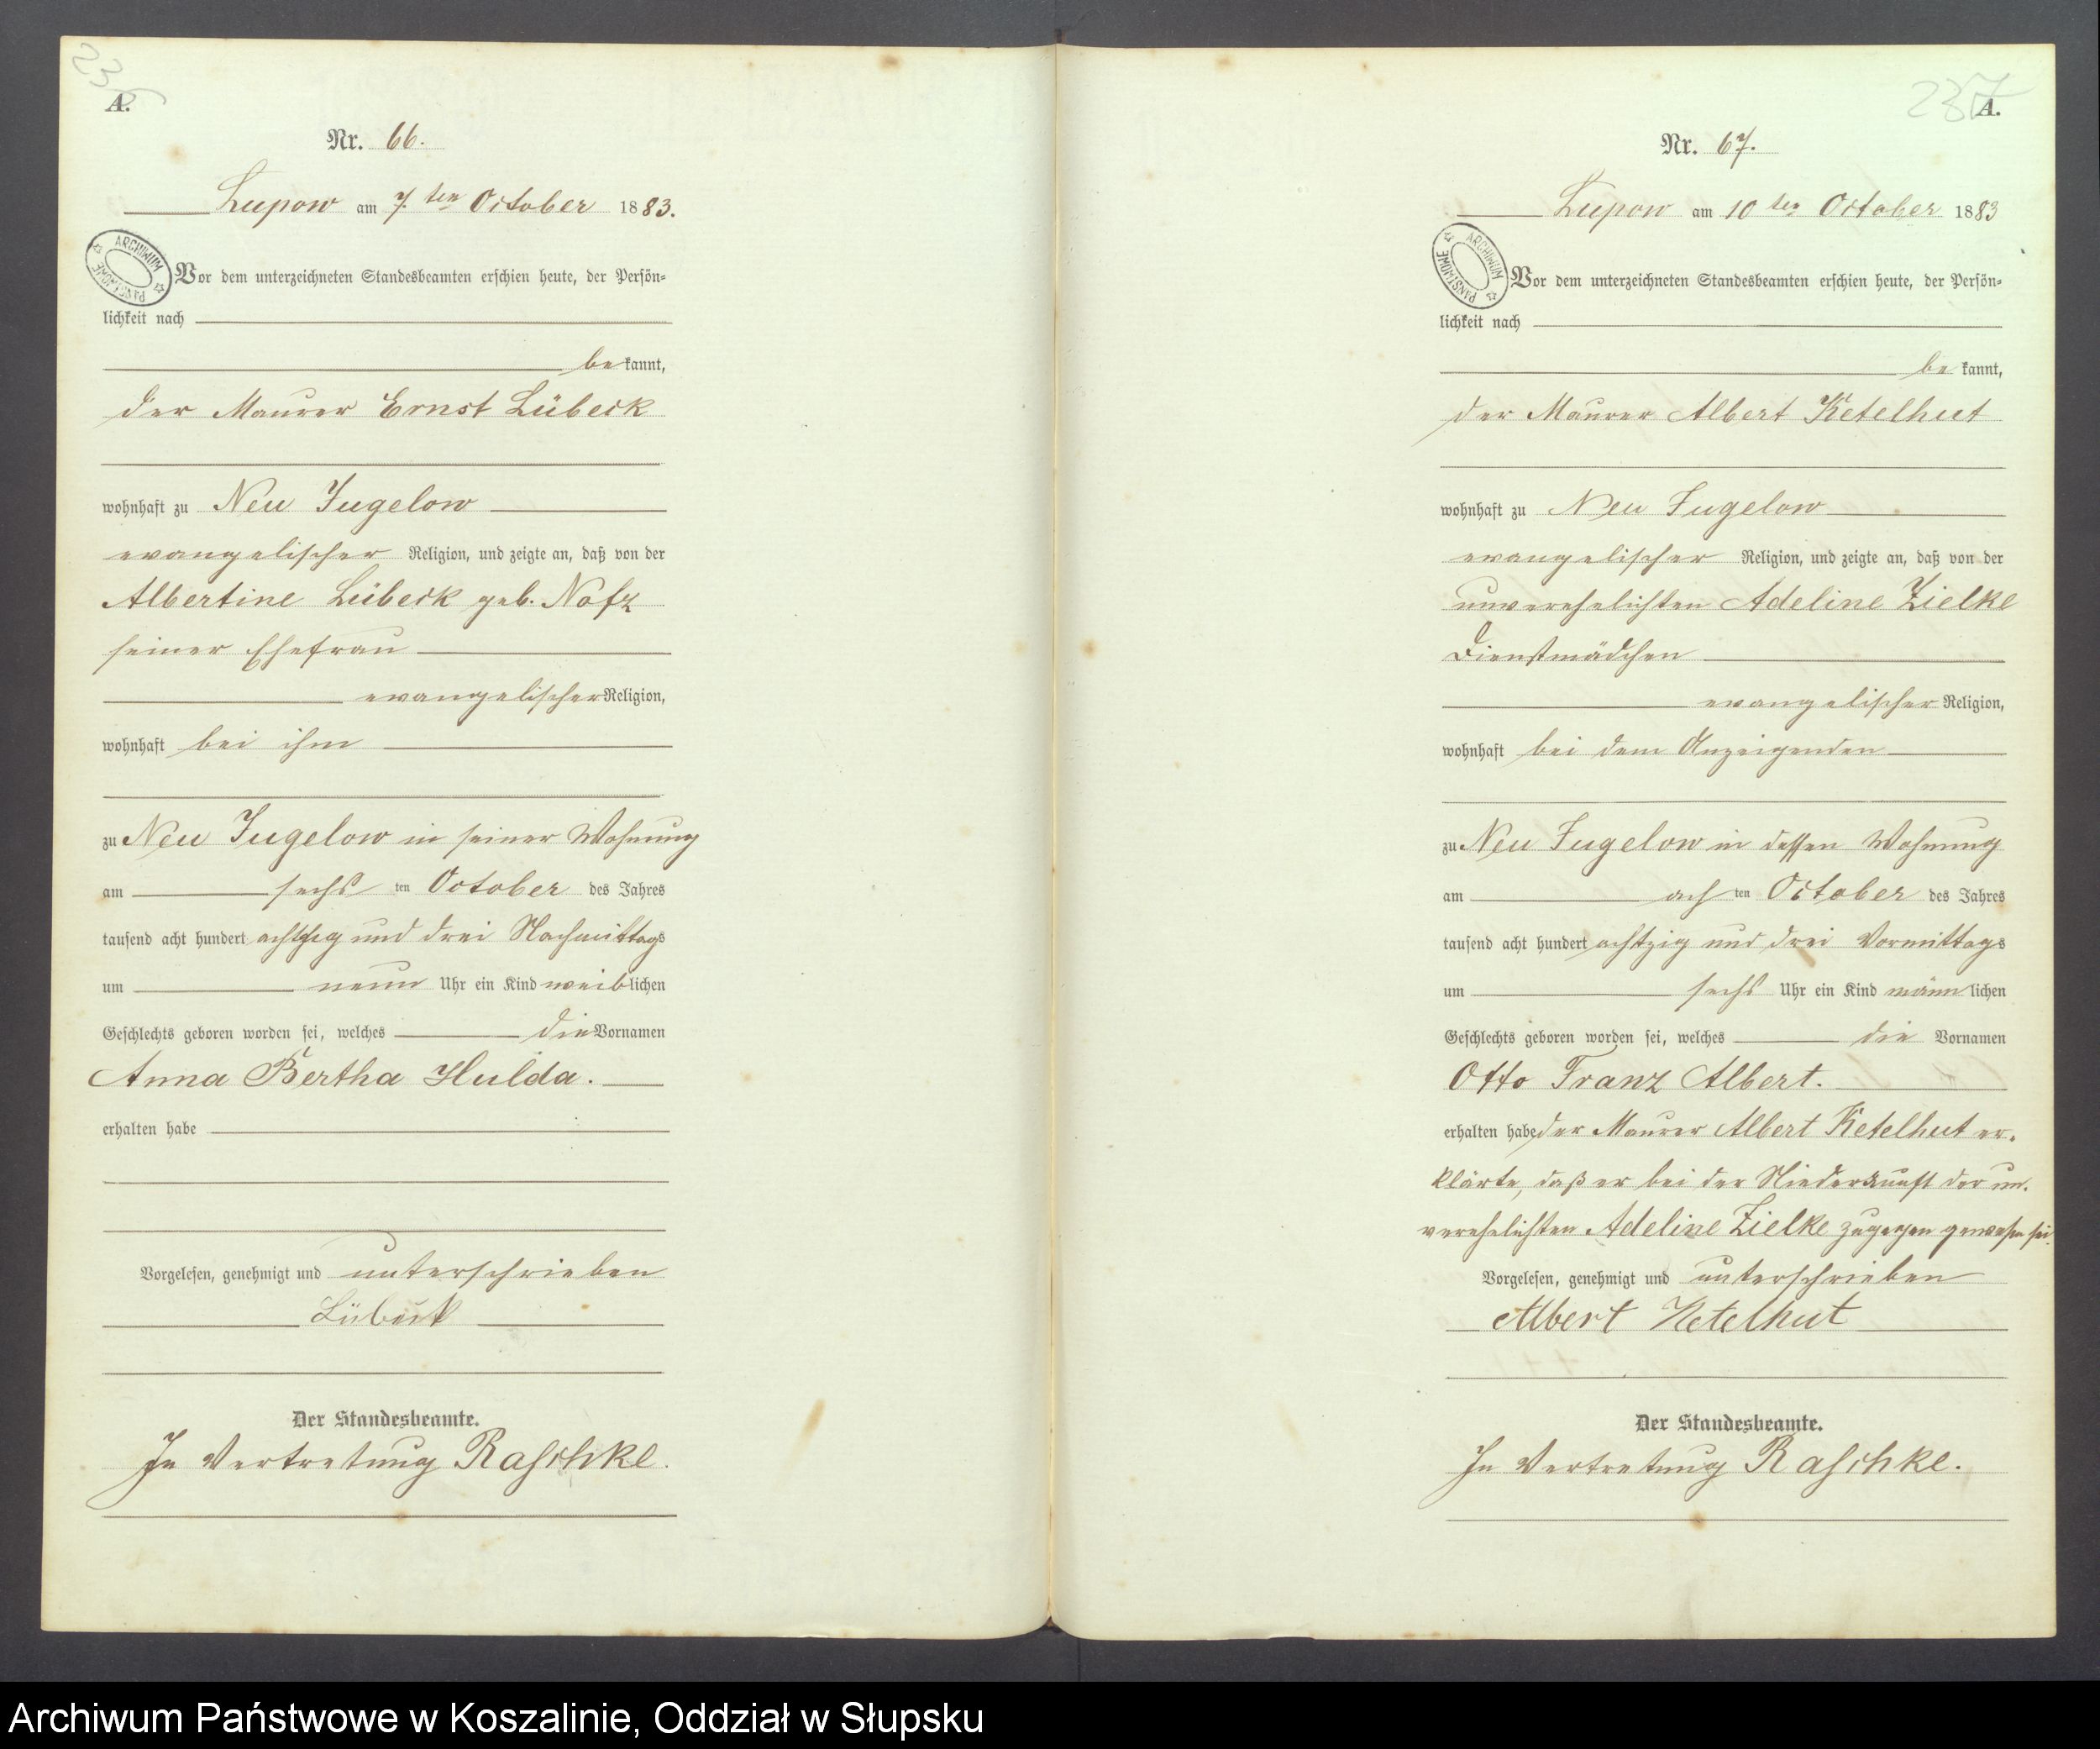 A.
Nr. 66.
Lupow am 7. ten October 1883.
ARCHIWUM PAŃSTWOWE
Vor dem unterzeichneten Standesbeamten erschien heute, der Persön=
lichkeit nach
be kannt,
der Maurer Ernst Lübeck
wohnhaft zu Neu Jugelow
evangelischer Religion, und zeigte an, daß von der
Albertine Lübeck geb. Nofz
seiner Ehefrau
evangelischer Religion,
wohnhaft bei ihm
zu Neu Jugelow in seiner Wohnung
am sechs ten October des Jahres
tausend acht hundert achtzig und drei Nachmittags
um neun Uhr ein Kind weiblichen
Geschlechts geboren worden sei, welches die Vornamen
Anna Bertha Hulda.
erhalten habe
Vorgelesen, genehmigt und unterschrieben
Lübeck
Der Standesbeamte.
In Vertretung Raschke.
237
A.
Nr. 67.
Lupow am 10 ten October 1883
ARCHIWUM PAŃSTWOWE
Vor dem unterzeichneten Standesbeamten erschien heute, der Persön=
lichkeit nach
be kannt,
der Maurer Albert Ketelhut
wohnhaft zu Neu Jugelow
evangelischer Religion, und zeigte an, daß von der
unverehelichten Adeline Zielke
Dienstmädchen
evangelischer Religion,
wohnhaft bei dem Anzeigenden
zu Neu Jugelow in dessen Wohnung
am ach ten October des Jahres
tausend acht hundert achtzig und drei Vormittags
um sechs Uhr ein Kind männlichen
Geschlechts geboren worden sei, welches die Vornamen
Otto Franz Albert.
erhalten habe der Maurer Albert Ketelhut er-
klärte, daß er bei der Niederkunft der un-
verehelichten Adeline Zielke zugegen gewesen sei.
Vorgelesen, genehmigt und unterschrieben
Albert Ketelhut
Der Standesbeamte.
In Vertretung Raschke.
Archiwum Państwowe w Koszalinie, Oddział w Słupsku